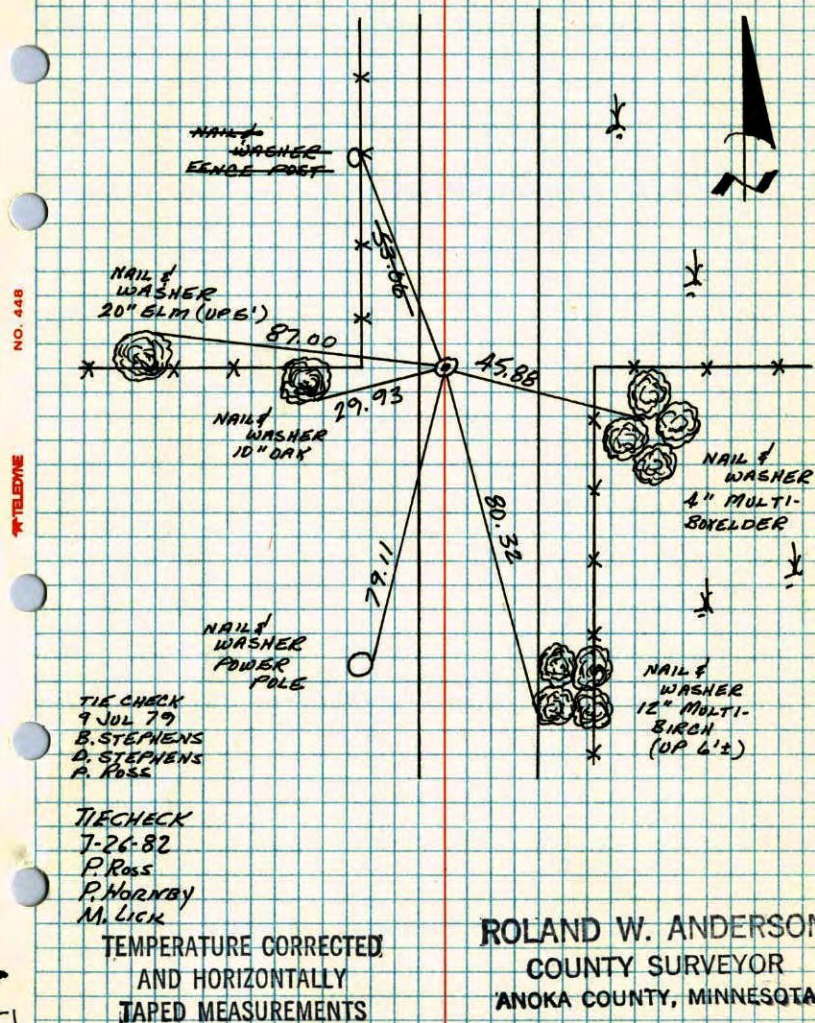 NAIL &
WASHER
FENCE POST
53.06
NAIL &
WASHER
20" ELM (UP 6')
87.00
29.93
45.88
NAIL &
WASHER
10" OAK
NAIL &
WASHER
4" MULTI-
BOXELDER
80.32
79.11
NAIL &
WASHER
POWER
POLE
NAIL &
WASHER
12" MULTI-
BIRCH
(UP 6'±)
TIE CHECK
9 JUL 79
B. STEPHENS
D. STEPHENS
P. ROSS
TIECHECK
7-26-82
P. ROSS
P. HORNBY
M. LICK
TEMPERATURE CORRECTED
AND HORIZONTALLY
TAPED MEASUREMENTS
ROLAND W. ANDERSON
COUNTY SURVEYOR
ANOKA COUNTY, MINNESOTA
NO. 448
TELEDYNE